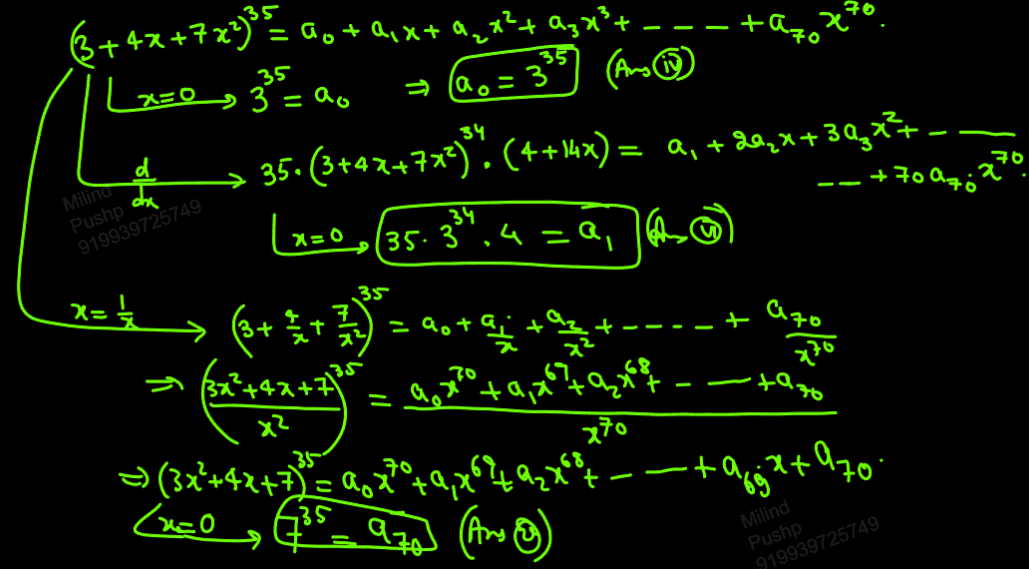 (3 + 4x + 7x²)³⁵ = a₀ + a₁x + a₂x² + a₃x³ + - - - - + a₇₀x⁷⁰.
x=0 → 3³⁵ = a₀ ⇒ a₀ = 3³⁵ (Ans iv)
d/dx → 35·(3+4x+7x²)³⁴·(4+14x) = a₁ + 2a₂x + 3a₃x² + - - - -
- - + 70a₇₀x⁷⁰.
x=0 → 35·3³⁴·4 = a₁ (Ans vi)
x = 1/x → (3 + 4/x + 7/x²)³⁵ = a₀ + a₁/x + a₂/x² + - - - - - + a₇₀/x⁷⁰
⇒ ((3x²+4x+7)/x²)³⁵ = (a₀x⁷⁰ + a₁x⁶⁹ + a₂x⁶⁸ + - - - + a₇₀)/x⁷⁰
⇒ (3x²+4x+7)³⁵ = a₀x⁷⁰ + a₁x⁶⁹ + a₂x⁶⁸ + - - - + a₆₉x + a₇₀.
x=0 → 7³⁵ = a₇₀ (Ans v)
Milind
Pushp
919939725749
Milind
Pushp
919939725749